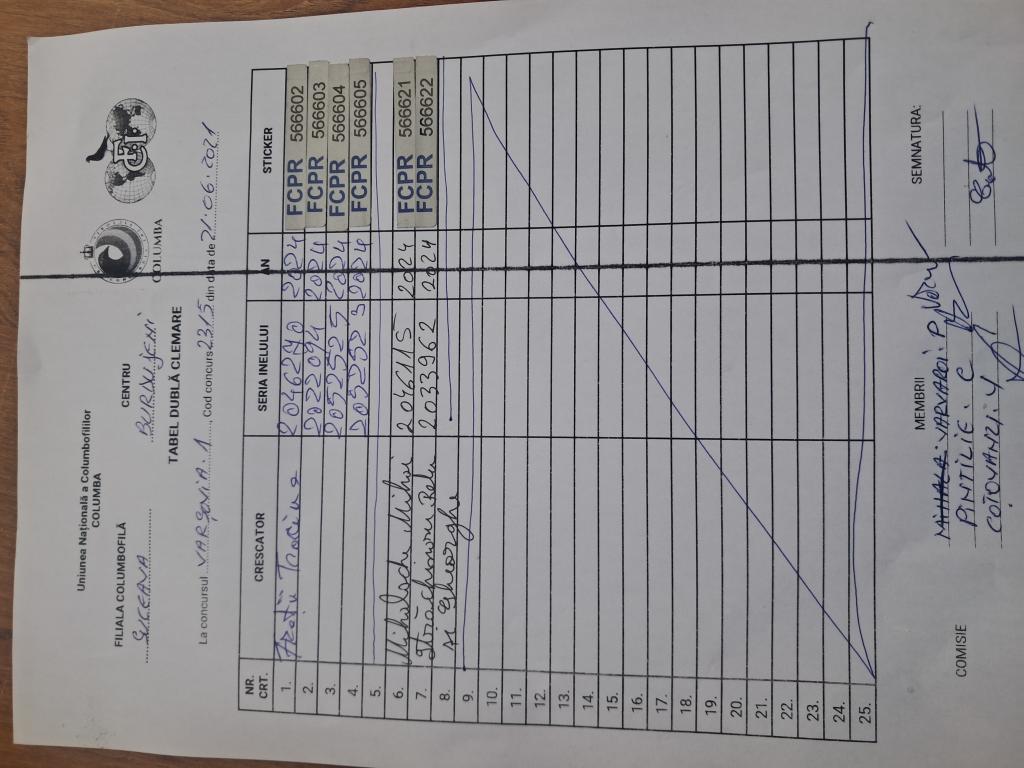 Uniunea Națională a Columbofililor
COLUMBA
COLUMBA
FCI
FILIALA COLUMBOFILĂ CENTRU
SUCEAVA BURDUJENI
TABEL DUBLĂ CLEMARE
La concursul VARȘOVIA 1, Cod concurs 23/5 din data de 21.06.2021
NR. CRT. CRESCATOR SERIA INELULUI AN STICKER
1. 2046270 2024 FCPR 566602
2. 2022074 2024 FCPR 566603
3. 2052525 2024 FCPR 566604
4. 2052523 2024 FCPR 566605
5.
6. Mihalache Mihai 2046115 2024 FCPR 566621
7. Radu 2033962 2024 FCPR 566622
8. si Gheorghe
9.
10.
11.
12.
13.
14.
15.
16.
17.
18.
19.
20.
21.
22.
23.
24.
25.
COMISIE MEMBRII SEMNATURA:
VARVAROI P
PINTILIE. C